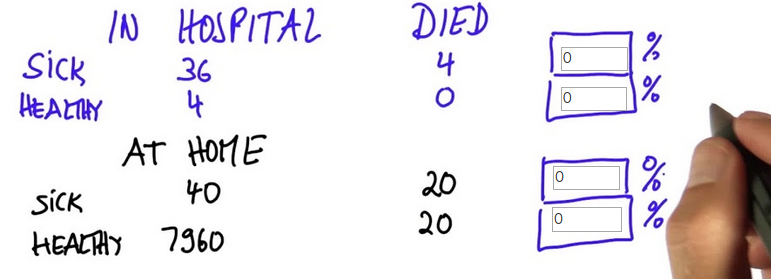 IN HOSPITAL DIED
SICK 36 4 0 %
HEALTHY 4 0 0 %
AT HOME
SICK 40 20 0 %
HEALTHY 7960 20 0 %